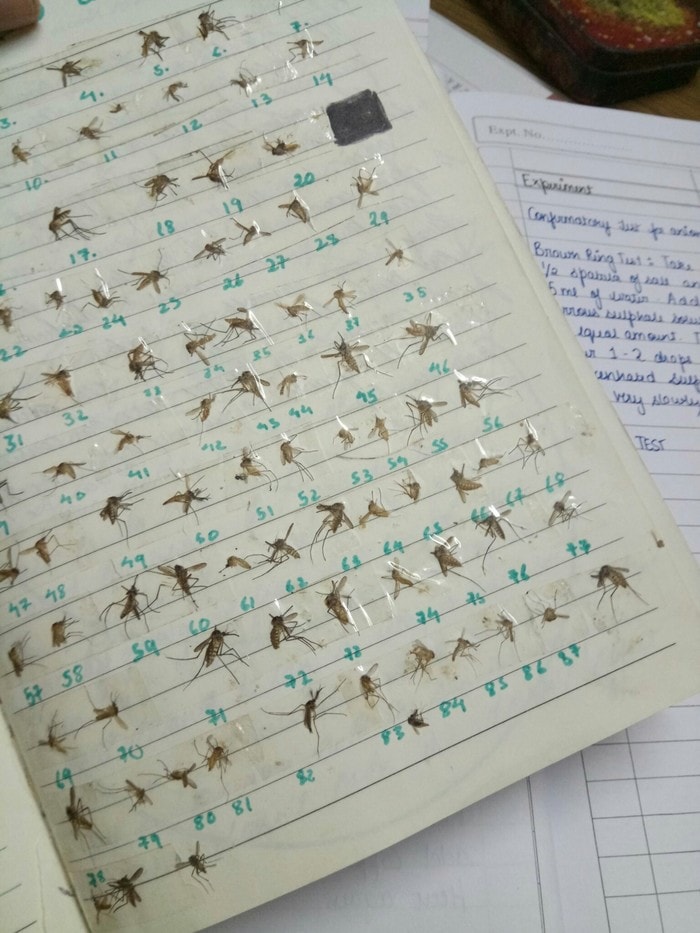 3. 4. 5. 6. 7.
10. 11 12 13 14
17. 18 19 20
22 23 24 25 26 27 28 29
31 32 33 34 35 36 37 35
40 41 42 43 44 45 46
47 48 49 50 51 52 53 54 55 56
57 58 59 60 61 62 63 64 65 66 67 68
69 70 71 72 73 74 75 76 77
78 79 80 81 82 83 84 85 86 87
Expt. No.
Experiment
Confirmatory test for anion
Brown Ring Test: Take
1/2 spatula of salt an
5 ml of water. Add
rrous sulphate solu
equal amount. T
1-2 drops
sulp
very slowly
TEST